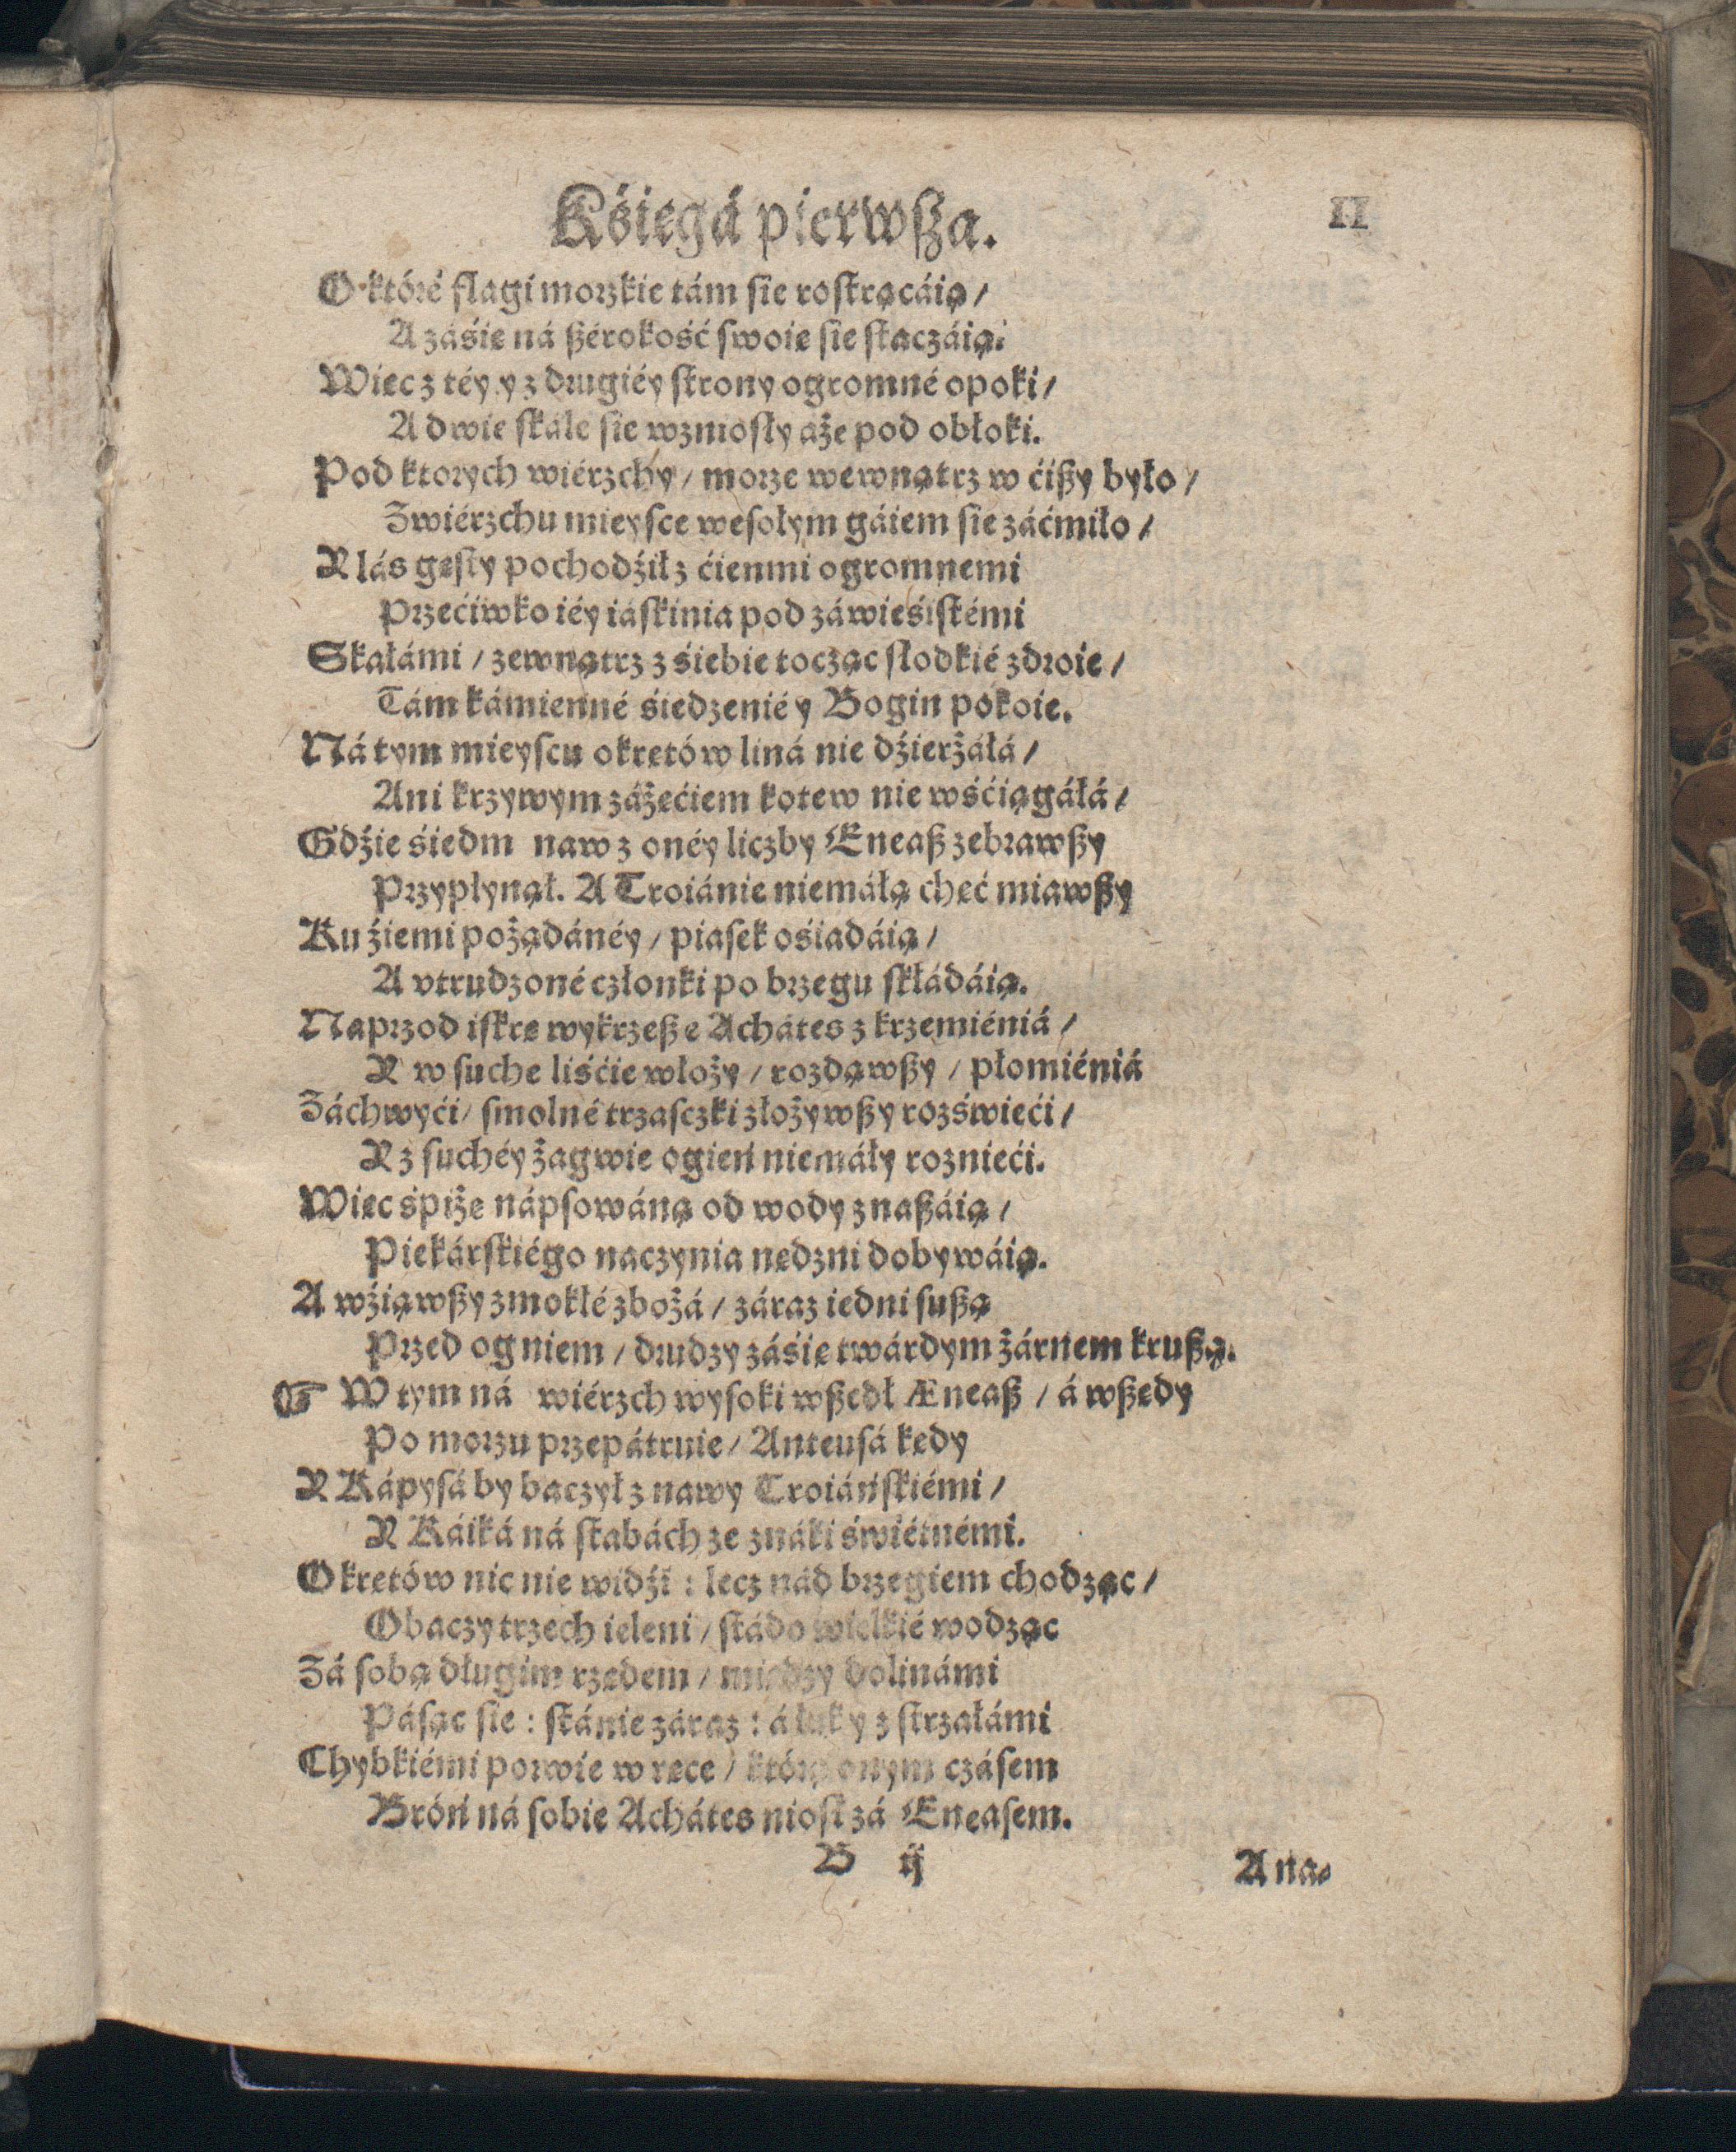 Kśięgá pierwsza. 11
O któré flagi morzkie tám sie rostrącáią /
A záśię ná szérokość swoię sie staczáią:
Więc z téy y z drugiéy strony ogromné opoki /
A dwie skále sie wzniosły aże pod obłoki.
Pod ktorych wiérzchy / morze wewnątrz w ćiszy było /
Zwiérzchu mieysce wesołym gáiem sie záćmiło /
Y lás gęsty pochodźił z ćienmi ogromnemi
Przećiwko iéy iáskinia pod záwieśistémi
Skałámi / zewnątrz z śiebie tocząc słodkié zdroie /
Tám kámienné śiedzenié y Bogin pokoie.
Ná tym mieyscu okrętów liná nie dźierżáłá /
Ani krzywym zážęćiem kotew nie wśćiągáłá /
Gdźie śiedm naw z onéy liczby Eneasz zebrawszy
Przypłynął. A Troiánie niemáłą chęć miawszy
Ku źiemi pożądánéy / piasek ośiadáią /
A vtrudzoné członki po brzegu skłádáią.
Naprzod iskrę wykrzesze Achátes z krzemiéniá /
Y w suche liśćie włoży / rozdąwszy / płomiéniá
Záchwyći / smolné trzasczki złożywszy rozświeći /
Y z suchéy żagwie ogień niemáły roznieći.
Więc śpiże nápsowáną od wody znaszáią /
Piekárskiégo naczynia nędzni dobywáią.
A wźiąwszy zmokłé zbożá / záraz iedni suszą
Przed ogniem / drudzy záśię twárdym żárnem kruszą.
☞ W tym ná wiérzch wysoki wszedł Æneasz / á wszędy
Po morzu przepátruie / Anteusá kędy
Y Kápysá by baczył z nawy Troiáńskiémi /
Y Káiká ná stabách ze znáki świétnémi.
Okrętów nic nie widźi : lecz nád brzegiem chodząc /
Obaczy trzech ieleni / stádo wielkié wodząc
Zá sobą długim rzędem / między dolinámi
Pásąc sie : stánie záraz : á łuk y z strzałámi
Chybkiémi porwie w ręce / którą onym czásem
Bróń ná sobie Achátes niosł zá Eneasem.
B ij Ana-